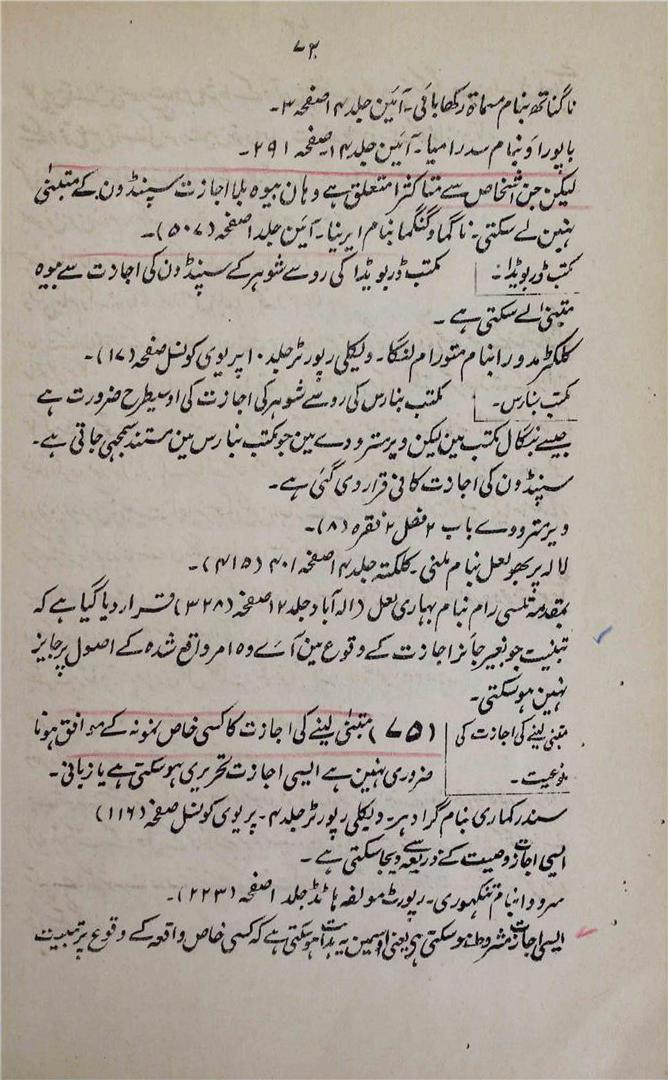 ۷۳
ناگناتھ بنام مسماۃ رکھابائی۔ آئین جلد ۱۴ صفحہ ۳۔
باپوراؤ بنام سدرامیا۔ آئین جلد ۱۴ صفحہ ۲۹۱۔
لیکن جن اشخاص سے متاکثرا متعلق ہے وہان بیوہ بلا اجازت سپنڈون کے متبنیٰ
ہنین لے سکتی۔ ناگما وگنگما بنام ایرنپا۔ آئین جلد ۱ صفحہ (۵۰۷)۔
مکتب ڈریوڈا۔ مکتب ڈریویڈا کی روسے شوہر کے سپنڈون کی اجازت سے بیوہ
متبنیٰ لے سکتی ہے۔
کلکٹر مدورا بنام متورام لنگا۔ ویکلی رپورٹر جلد ۱۰ پریوی کونسل صفحہ (۱۷)۔
مکتب بنارس۔ مکتب بنارس کی روسے شوہر کی اجازت کی اوسیطرح ضرورت ہے
جیسے بنگال مکتب مین لیکن ویرمترودے مین جو مکتب بنارس مین مستند سمجہی جاتی ہے۔
سپنڈون کی اجازت کافی قرار دی گئی ہے۔
ویرمترووے باب ۲ فصل ۲ فقرہ (۸)۔
لالہ پربھولعل بنام ملنی۔ کلکتہ جلد ۱۴ صفحہ ۴۰۱ (۴۱۵)۔
بمقدمہ تلسی رام بنام بہاری لعل (الہ آباد جلد ۱۲ صفحہ (۳۲۸) قرار دیا گیا ہے کہ
تبنیت جو بغیر جائز اجازت کے وقوع مین آے وہ امر واقع شدہ کے اصول پر جایز
نہین ہوسکتی۔
متبنیٰ لینے کی اجازت کی (۷۵) متبنیٰ لینے کی اجازت کا کسی خاص نمونہ کے موافق ہونا
نوعیت۔ ضروری ہنین ہے ایسی اجازت تحریری ہوسکتی ہے یا زبانی۔
سندر کماری بنام گرادہر۔ ویکلی رپورٹر جلد ۴۔ پریوی کونسل صفحہ (۱۱۶)
ایسی اجازت وصیت کے ذریعہ سے دیجاسکتی ہے۔
سرودا بنام تنکہوری۔ رپورٹ مولفہ ہائڈ جلد ۱ صفحہ (۲۲۳)۔
ایسی اجازت مشروط ہوسکتی ہی یعنی اوسمین یہ ہدایت ہوسکتی ہے کہ کسی خاص واقعہ کے وقوع پر تبنیت